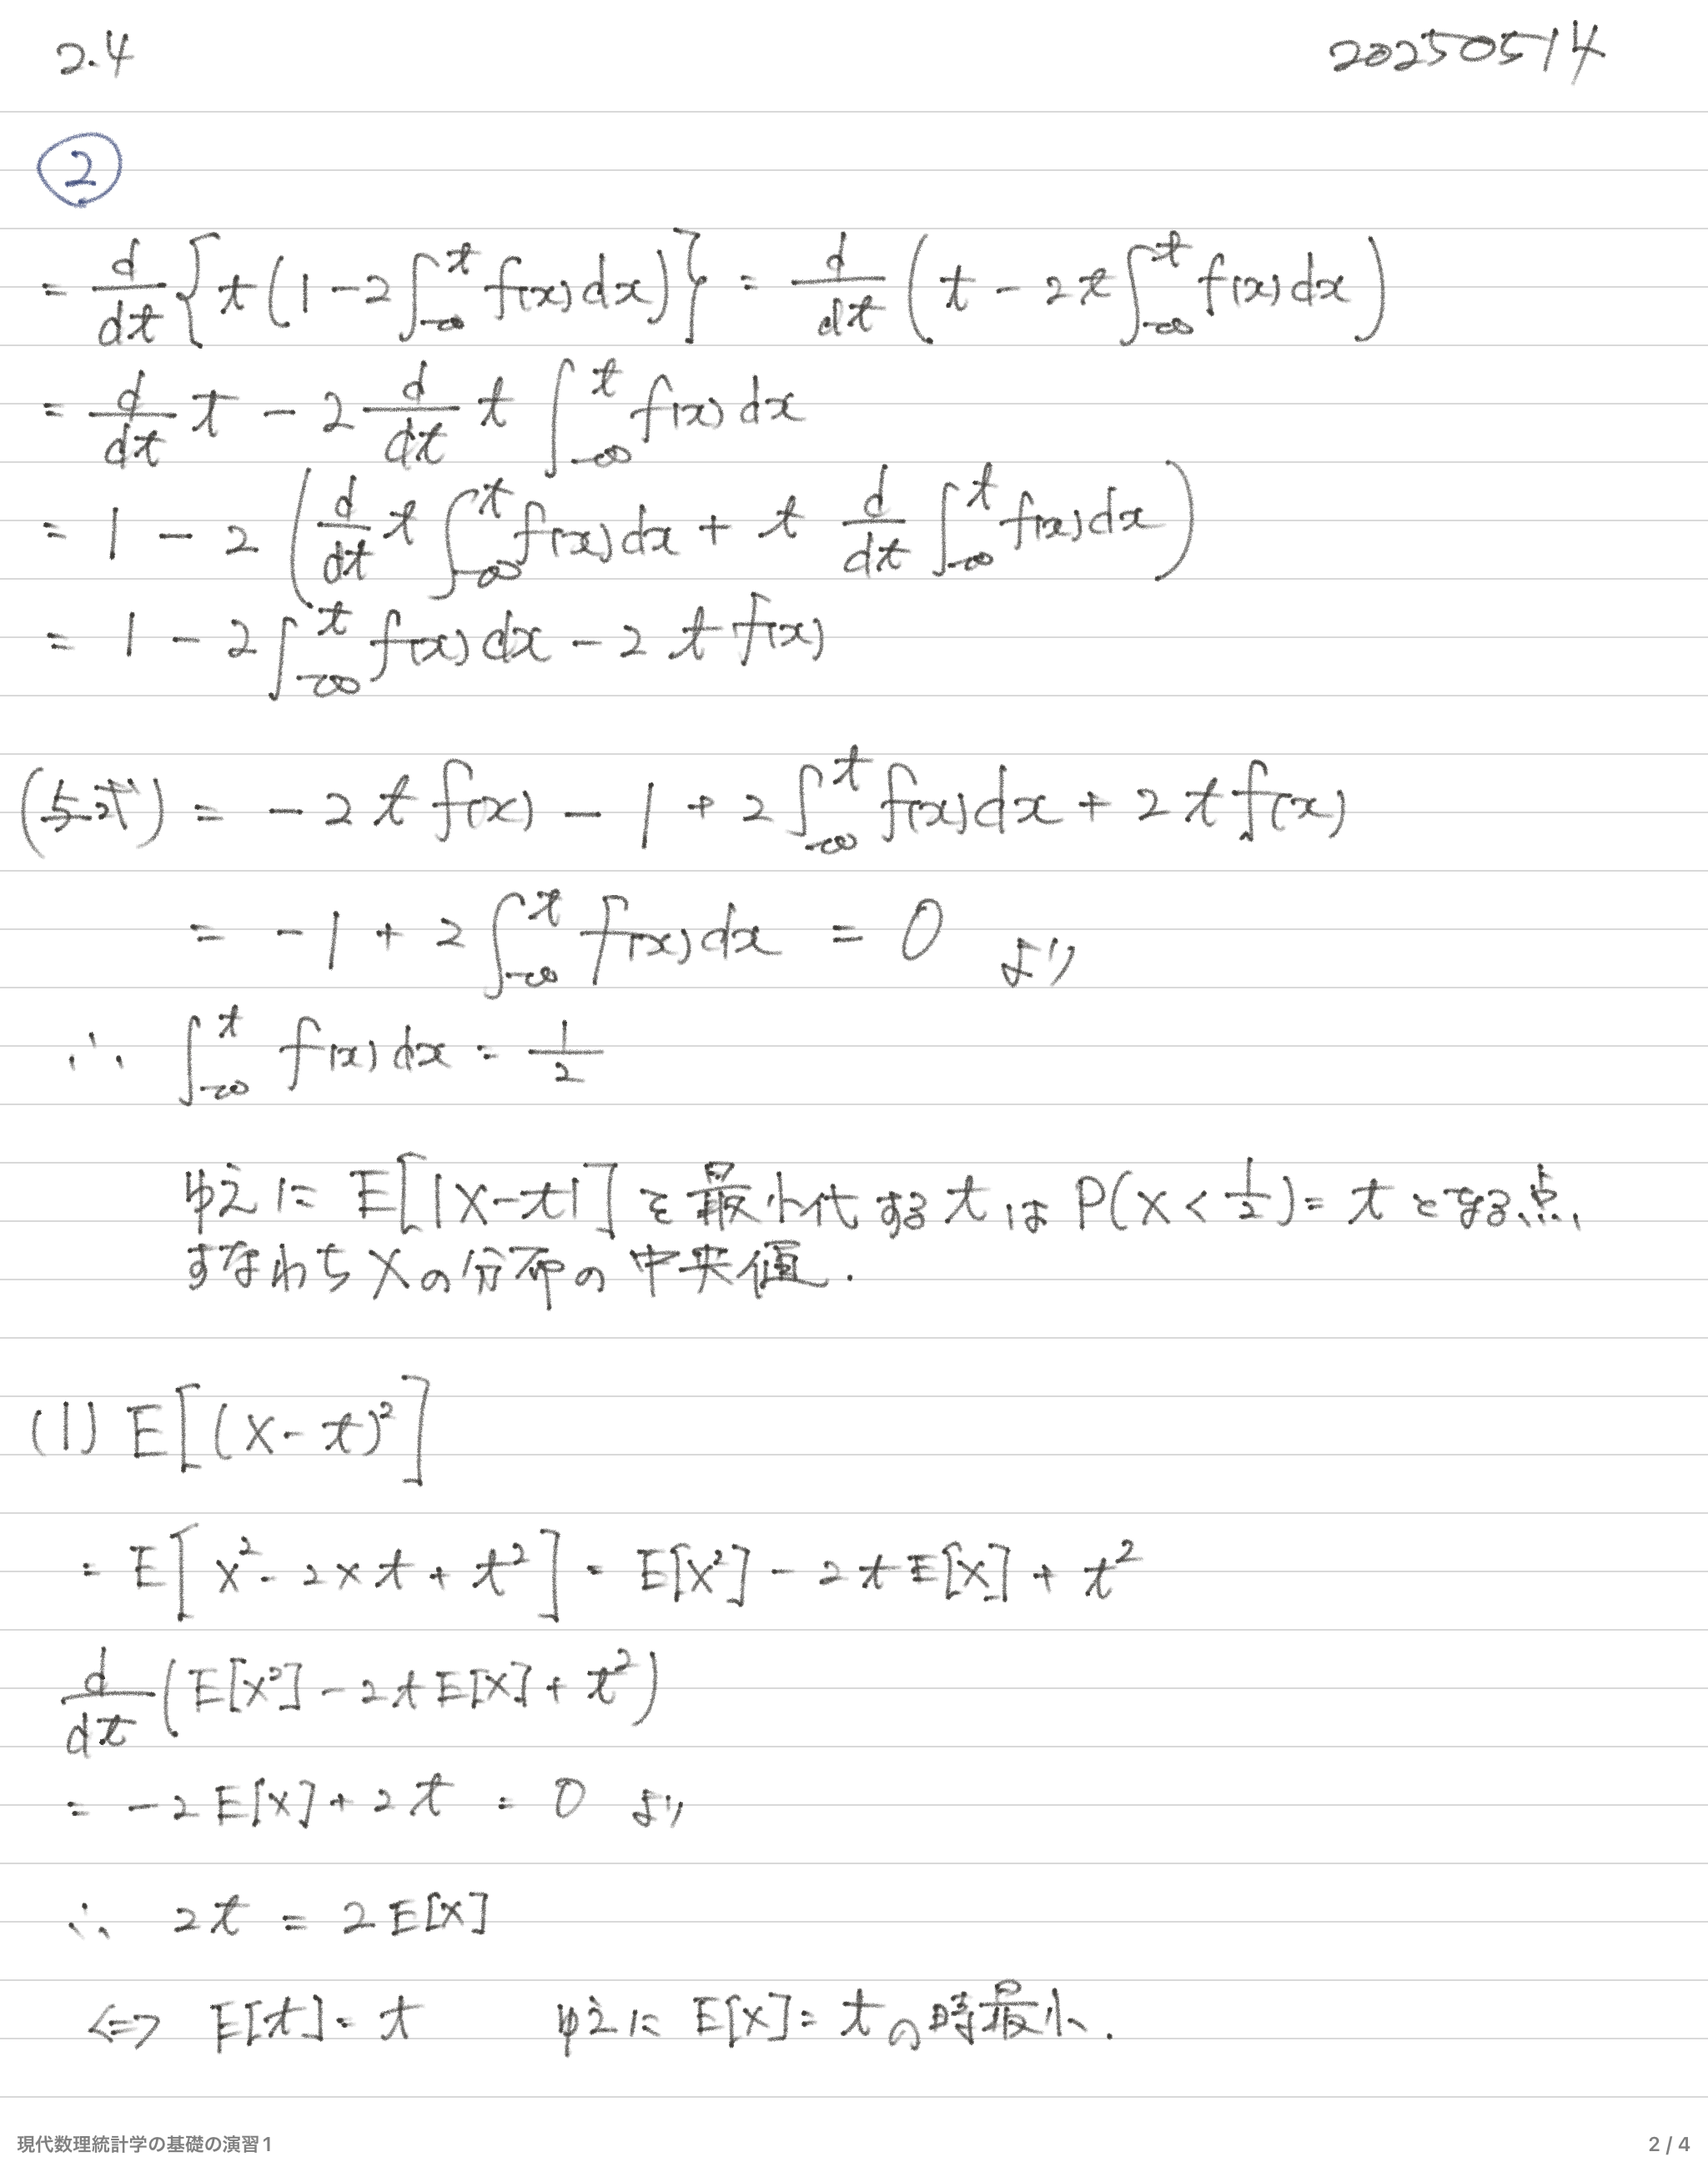 2.4 20250514
②
= d/dt { t ( 1 - 2 ∫_{-∞}^{t} f(x) dx ) } = d/dt ( t - 2t ∫_{-∞}^{t} f(x) dx )
= d/dt t - 2 d/dt t ∫_{-∞}^{t} f(x) dx
= 1 - 2 ( d/dt t ∫_{-∞}^{t} f(x) dx + t d/dt ∫_{-∞}^{t} f(x) dx )
= 1 - 2 ∫_{-∞}^{t} f(x) dx - 2 t f(x)
(与式) = - 2 t f(x) - 1 + 2 ∫_{-∞}^{t} f(x) dx + 2 t f(x)
= - 1 + 2 ∫_{-∞}^{t} f(x) dx = 0 より
∴ ∫_{-∞}^{t} f(x) dx = 1/2
ゆえに E[|X-t|] を最小代する t は P(X < 1/2) = t となる点、
すなわち X の分布の中央値.
(1) E[(X-t)²]
= E[X² - 2Xt + t²] = E[X²] - 2tE[X] + t²
d/dt (E[X²] - 2tE[X] + t²)
= -2E[X] + 2t = 0 より
∴ 2t = 2E[X]
⇔ E[t] = t ゆえに E[X] = t の時最小.
現代数理統計学の基礎の演習1 2 / 4